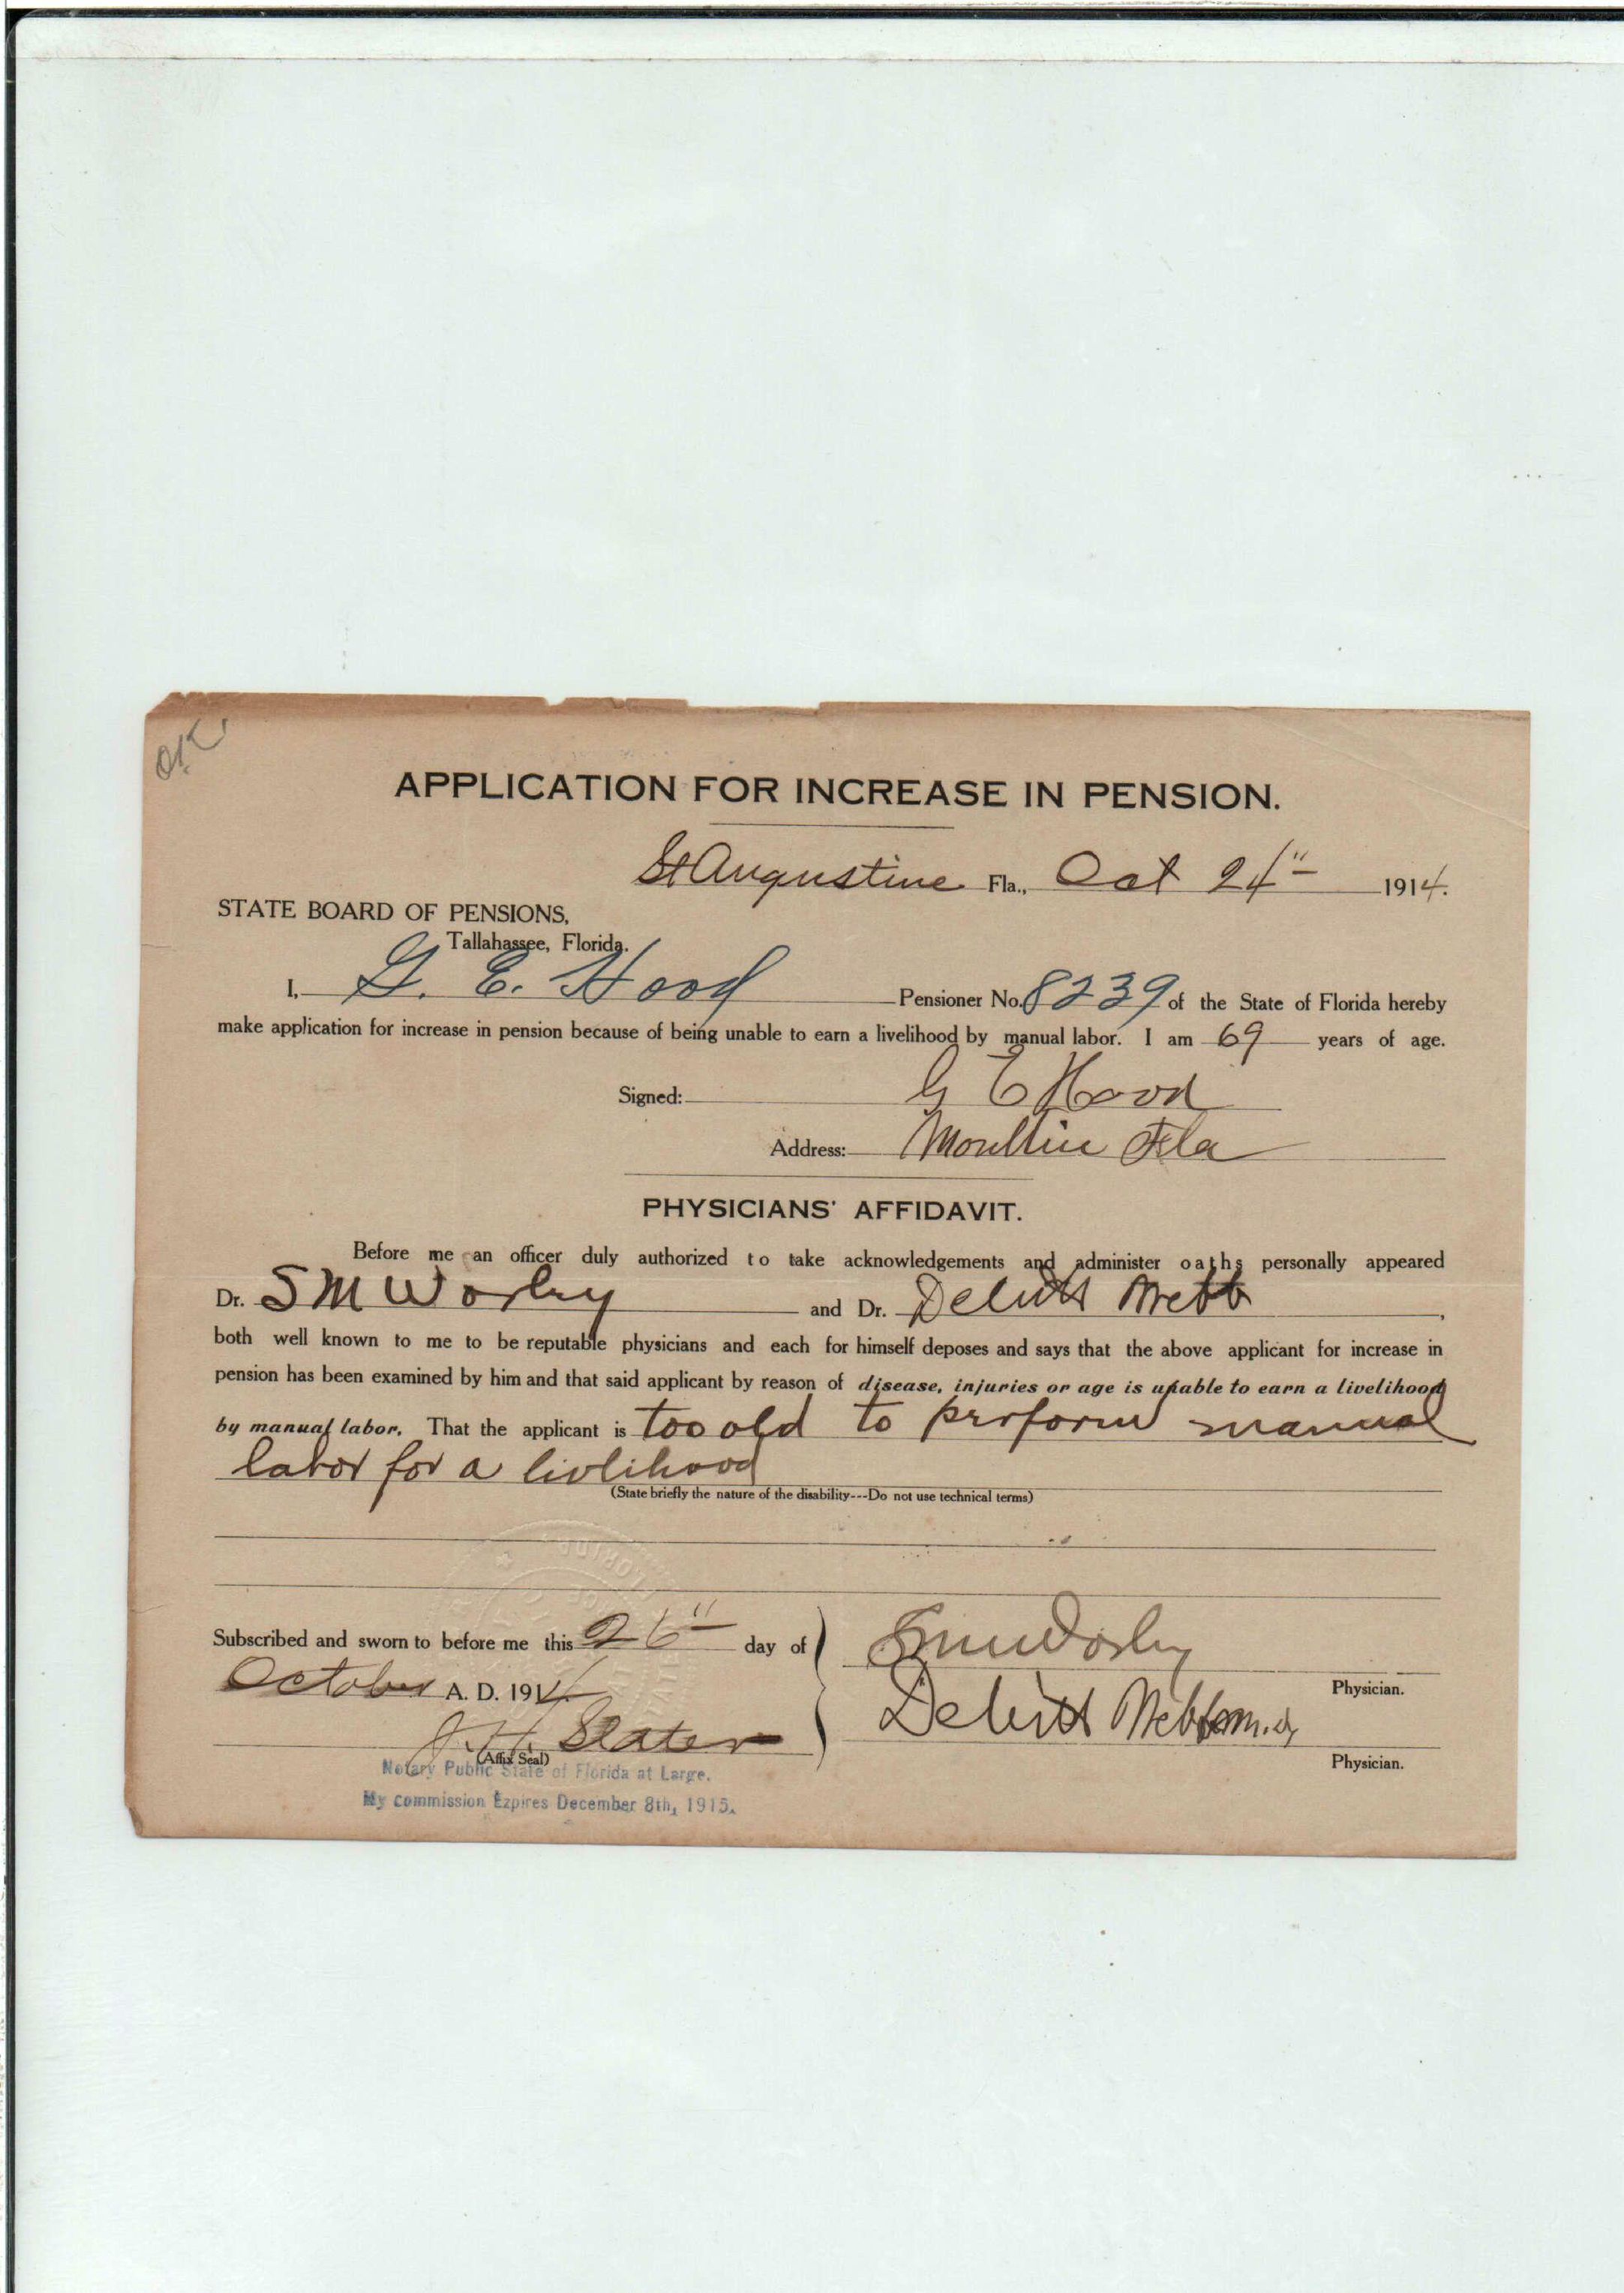 O.K.
APPLICATION FOR INCREASE IN PENSION.
St Augustine Fla., Oct 24" 1914.
STATE BOARD OF PENSIONS,
Tallahassee, Florida.
I, G. E. Hood Pensioner No. 8239 of the State of Florida hereby
make application for increase in pension because of being unable to earn a livelihood by manual labor. I am 69 years of age.
Signed: G E Hood
Address: Moultrie Fla
PHYSICIANS' AFFIDAVIT.
Before me an officer duly authorized to take acknowledgements and administer oaths personally appeared
Dr. S M Worley and Dr. DeWitt Webb,
both well known to me to be reputable physicians and each for himself deposes and says that the above applicant for increase in
pension has been examined by him and that said applicant by reason of disease, injuries or age is unable to earn a livelihood
by manual labor. That the applicant is too old to perform manual
labor for a livlihood
(State briefly the nature of the disability---Do not use technical terms)
Subscribed and sworn to before me this 26" day of
October A. D. 1914
J. H. Slater
(Affix Seal)
Notary Public State of Florida at Large.
My commission Expires December 8th, 1915.
S M Worley
Physician.
DeWitt Webb M.D.
Physician.